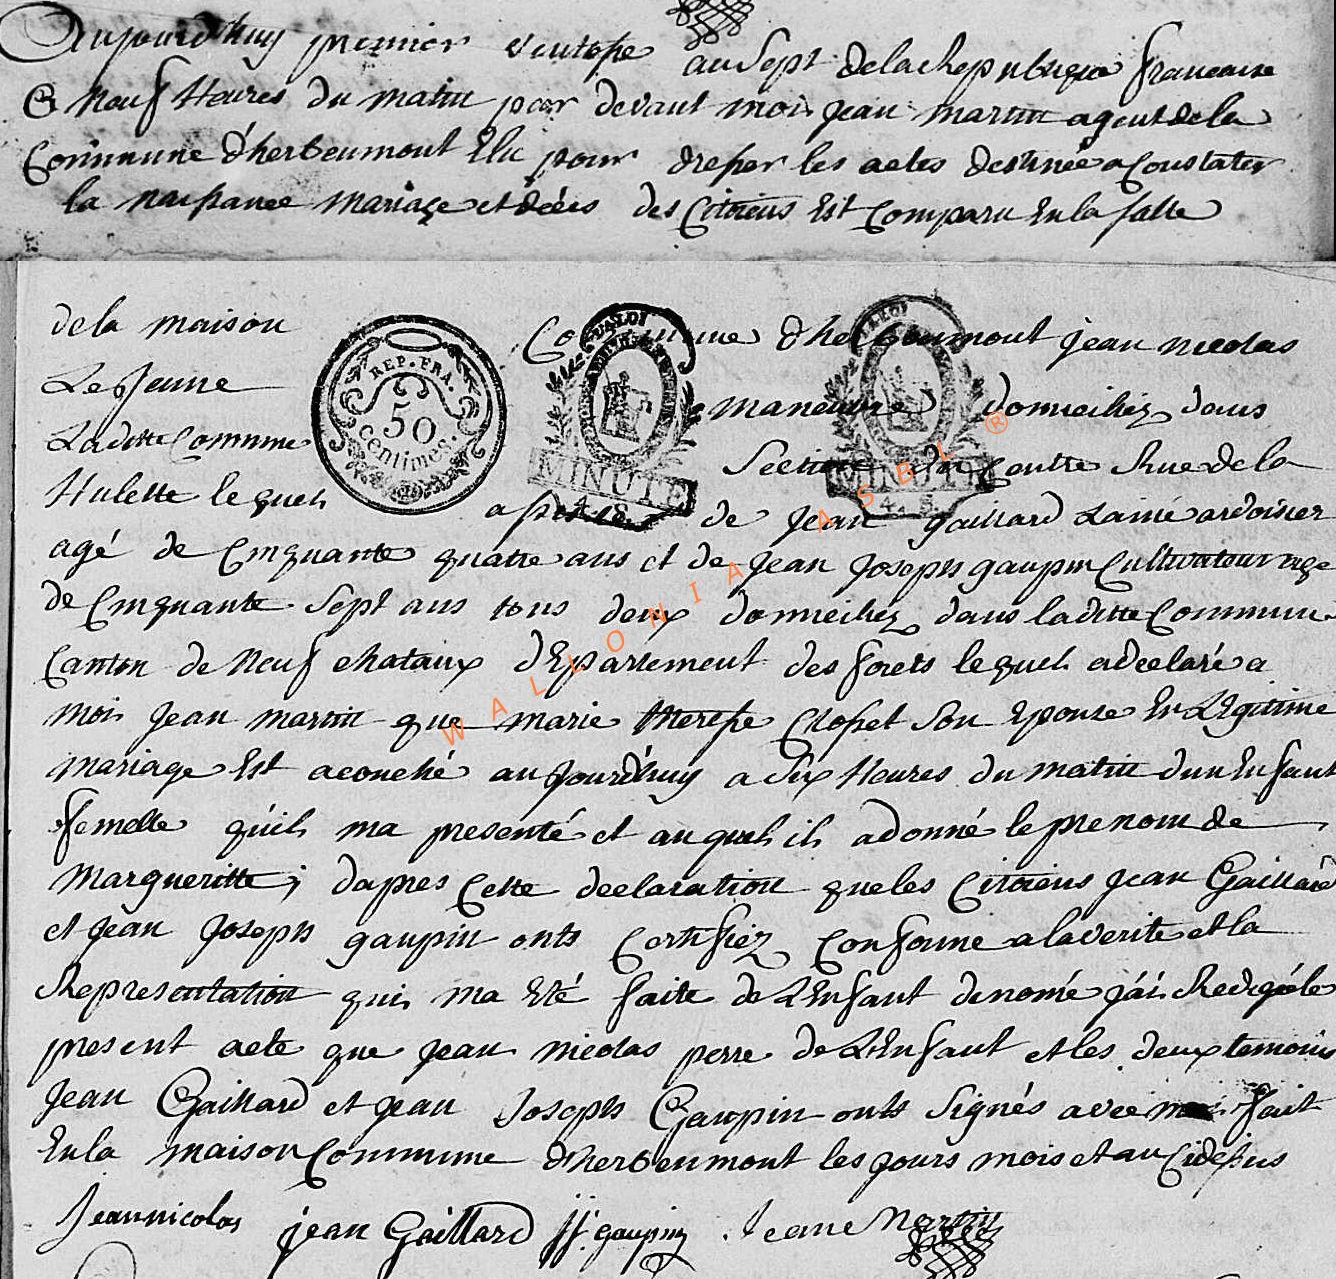 Aujourdhuy premier ventose au Sept dela Republique francaise
à neuf Heures du matin par devant moi jean martin agent de la
Commune d'herbeumont Elu pour dresser les actes destinée a Constater
la naissance mariage et décés des Citoiens Est Comparu En la salle
de la maison Commune dherbeumont jean nicolas
Le Jeune maneuvre domiciliez dans
Laditte Commune Section du Rue de la
Hulette lequel assisté de Jean gaillard Lainé ardoisier
agé de Cinquante quatre ans et de Jean Joseph gaupin Cultivateur age
de Cinquante Sept ans tous deux domiciliez dans laditte Commune
Canton de Neufchataux dEpartement des forets lequel a declaré a
moi Jean martin que marie therese Closset Son Epouse En LEgitime
mariage Est acouché aujourdhuy a Six Heures du matin dun Enfant
femelle quil ma presenté et auquel il a donné le prenom de
Margueritte; dapres Cette declaration que les Citoiens Jean Gaillard
et Jean Joseph gaupin onts Certifiez Conforme a la verite et la
Representation qui ma Eté faite de LEnfant denomé j'ai Redigé le
present acte que Jean nicolas perre de LEnfant et les deux temoins
Jean Gaillard et Jean Joseph Gaupin onts Signés avec moi fait
En la maison Commune dherbeumont les jours mois et an Cidessus
Jean nicolas jean Gaillard JJ gaupin Jeane Martin
REP. FRA.
50
centimes.
MINUTE
MINUTE
WALLONIA ASBL ®